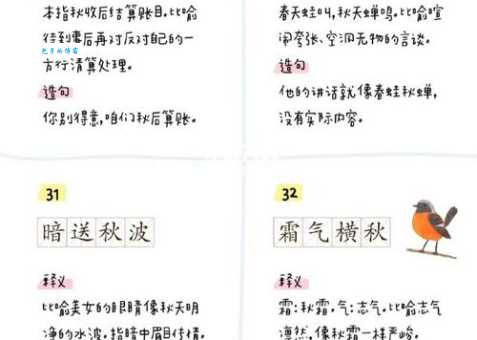 本指秋收后结算账目。比喻
待到事后再对反对自己的一
方行清算处理。
造句
你别得意,咱们秋后算账。
春天蛙叫,秋天蝉鸣。比喻喧
闹夸张、空洞无物的言谈。
造句
他的讲话就像春蛙秋蝉,
没有实际内容。
31
暗送秋波
释义
比喻美女的眼睛像秋天明
净的水波。指暗中眉目传情。
32
霜气横秋
释义
霜:秋霜。气:志气。比喻志气
凛然,像秋霜一样严峻。